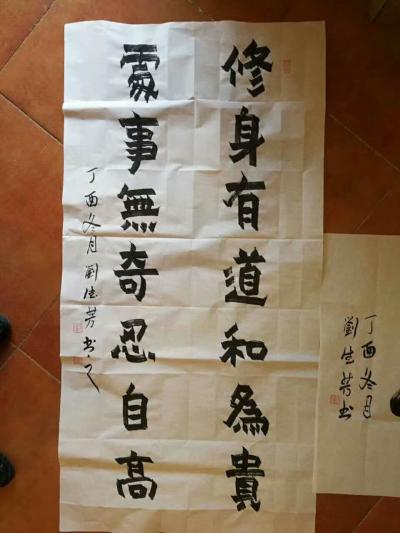 修身有道和為貴
處事無奇忍自高
丁酉冬月劉佳芳书
丁酉冬月
劉佳芳书